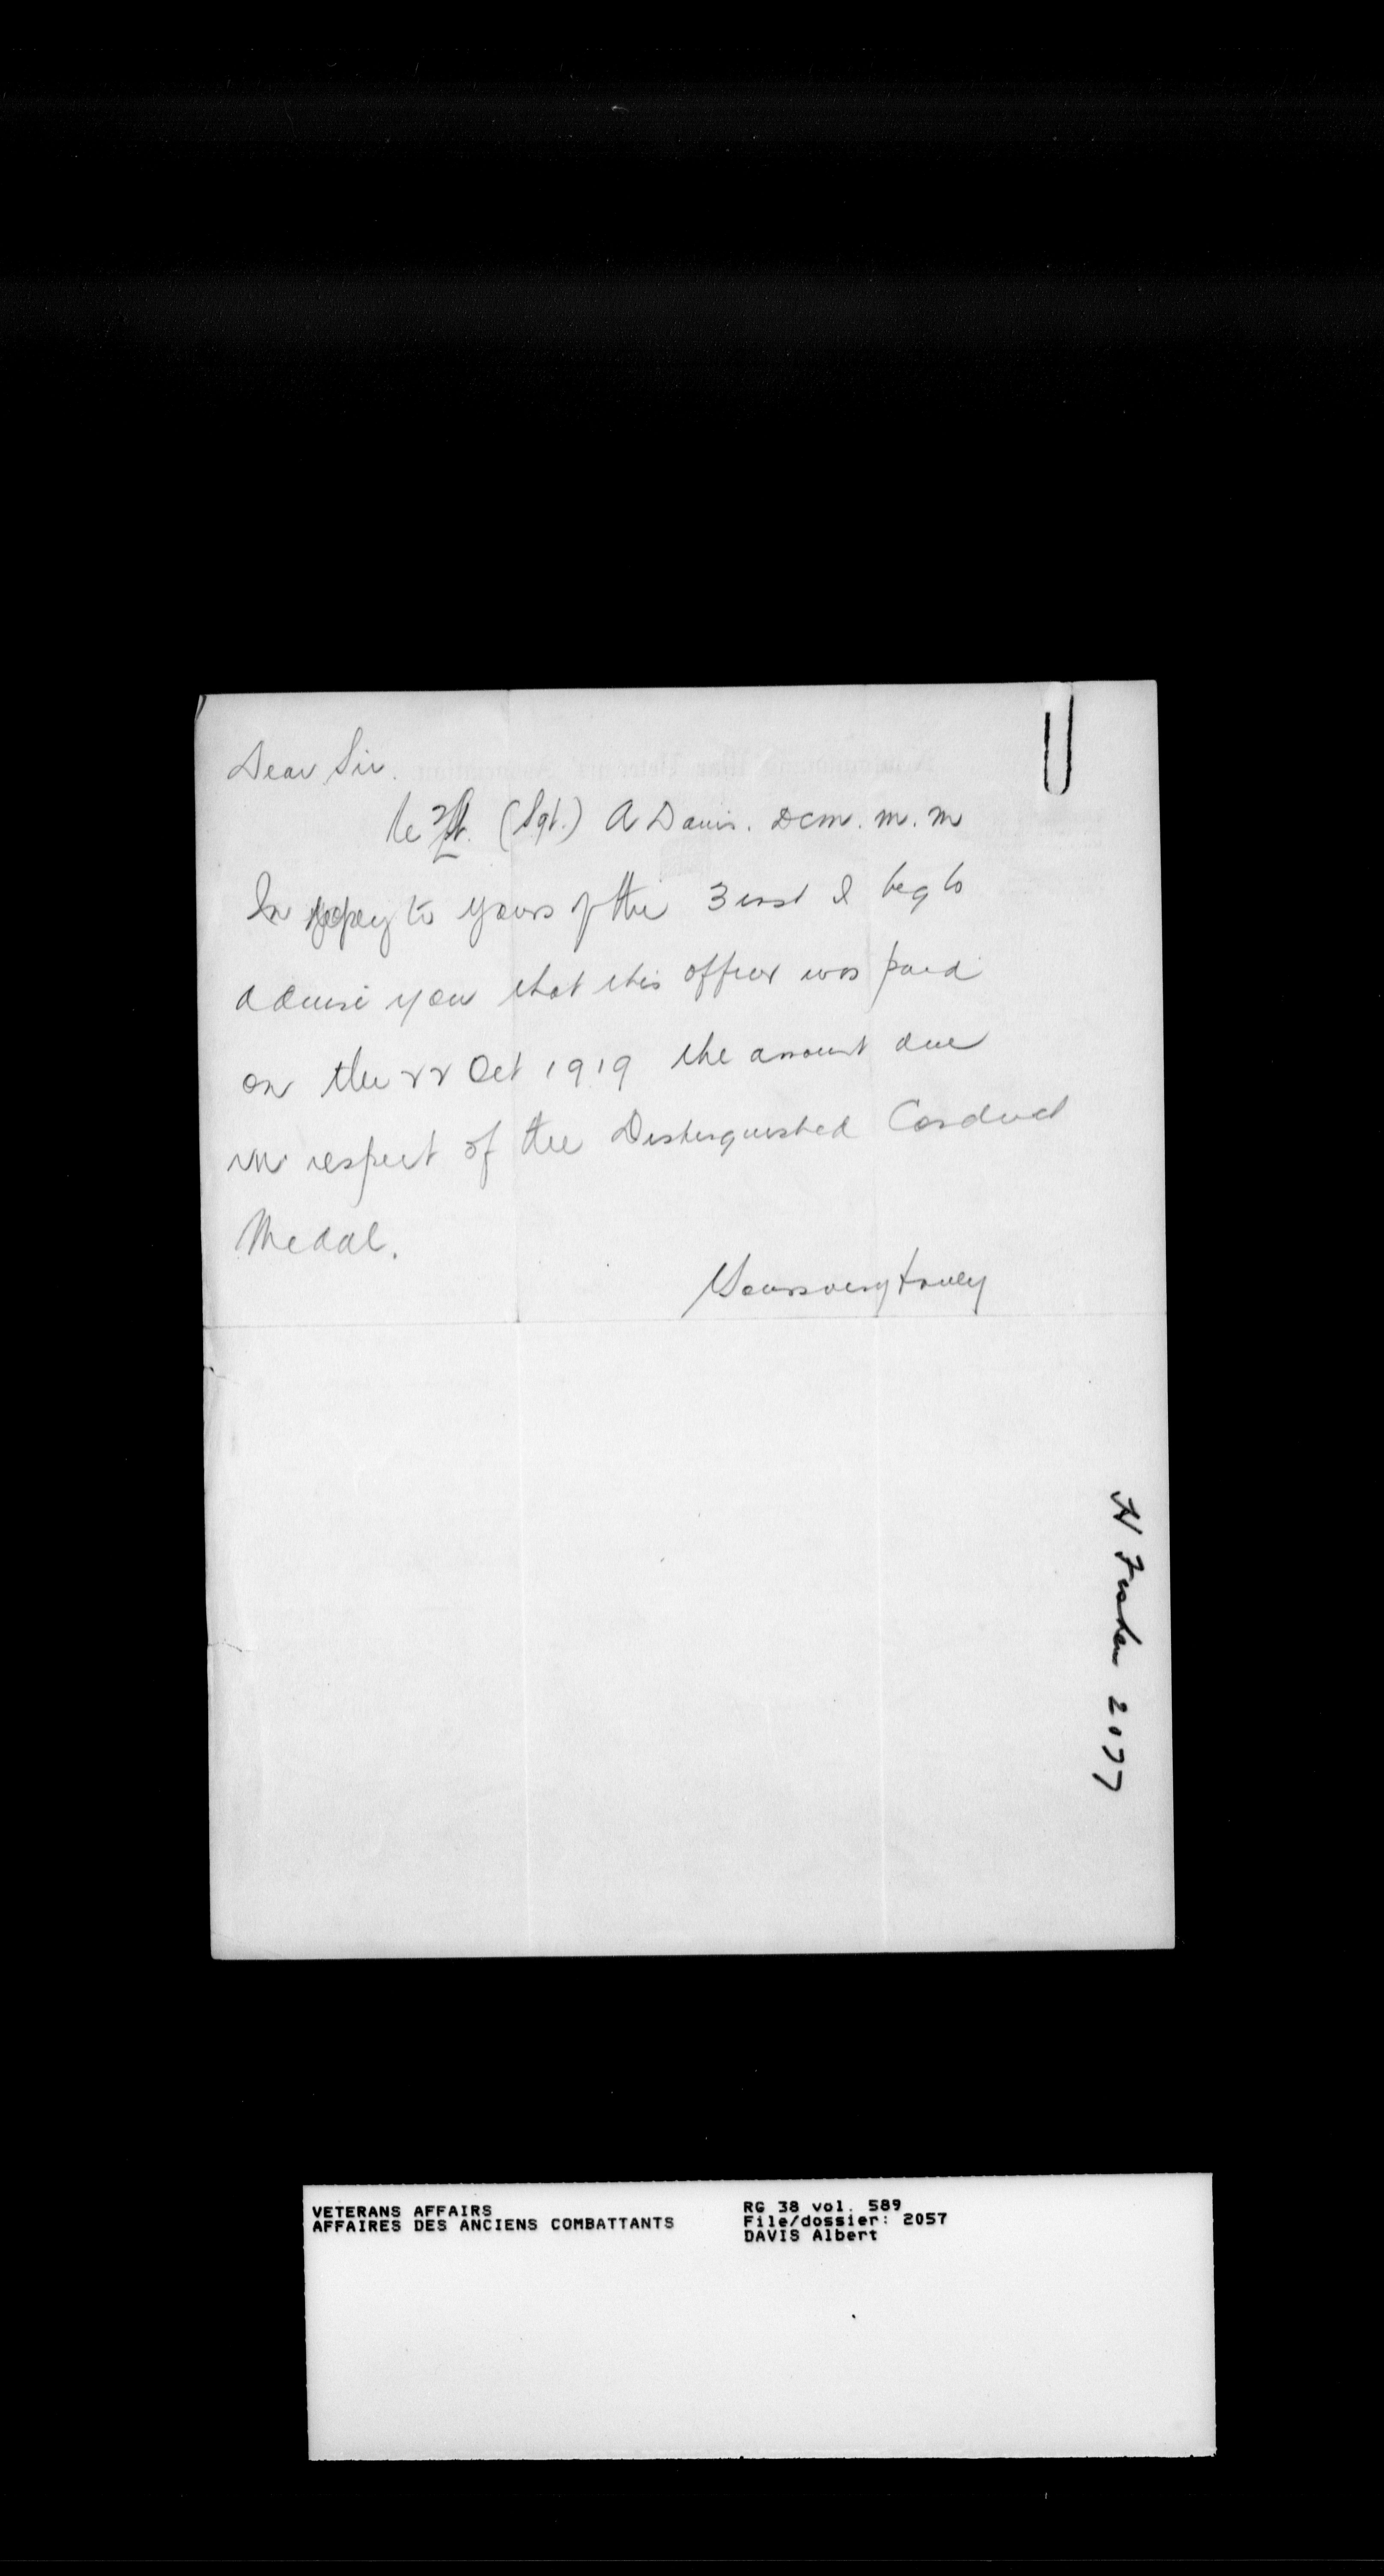 Dear Sir.
Re 2/Lt. (Sgt.) A Davis. DCM. M. M
In reply to yours of the 3 inst I beg to
advise you that this officer was paid
on the 22 Oct 1919 the amount due
in respect of the Distinguished Conduct
Medal.
Yours very truly
2177
VETERANS AFFAIRS
AFFAIRES DES ANCIENS COMBATTANTS
RG 38 vol. 589
File/dossier: 2057
DAVIS Albert